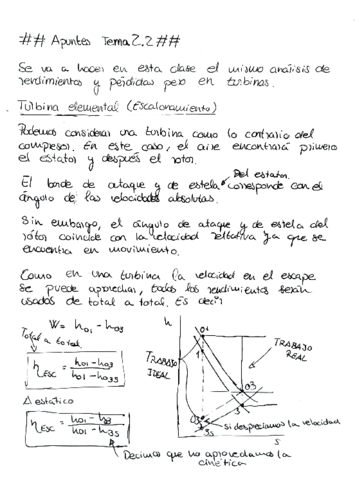 ## Apuntes Tema 2.2 ##
Se va a hacer en esta clase el mismo análisis de
rendimientos y pérdidas pero en turbinas.
Turbina elemental (Escalonamiento)
Podemos considerar una turbina como lo contrario del
compresor. En este caso, el aire encontrará primero
el estator y después el rotor.
Del estator
El borde de ataque y de estela corresponde con el
ángulo de las velocidades absolutas.
Sin embargo, el ángulo de ataque y de estela del
rotor coincide con la velocidad relativa ya que se
encuentra en movimiento.
Como en una turbina la velocidad en el escape
se puede aprovechar, todos los rendimientos serán
usados de total a total. Es decir
W = h01 - h03
Total a total
ηESC = h01 - h03 / h01 - h03s
Δ estático
ηESC = h01 - h03 / h01 - h3s
Decimos que no aprovechamos la
cinética
h
01
1
TRABAJO
IDEAL
TRABAJO
REAL
03
3
03s
3s
si despreciamos la velocidad
s